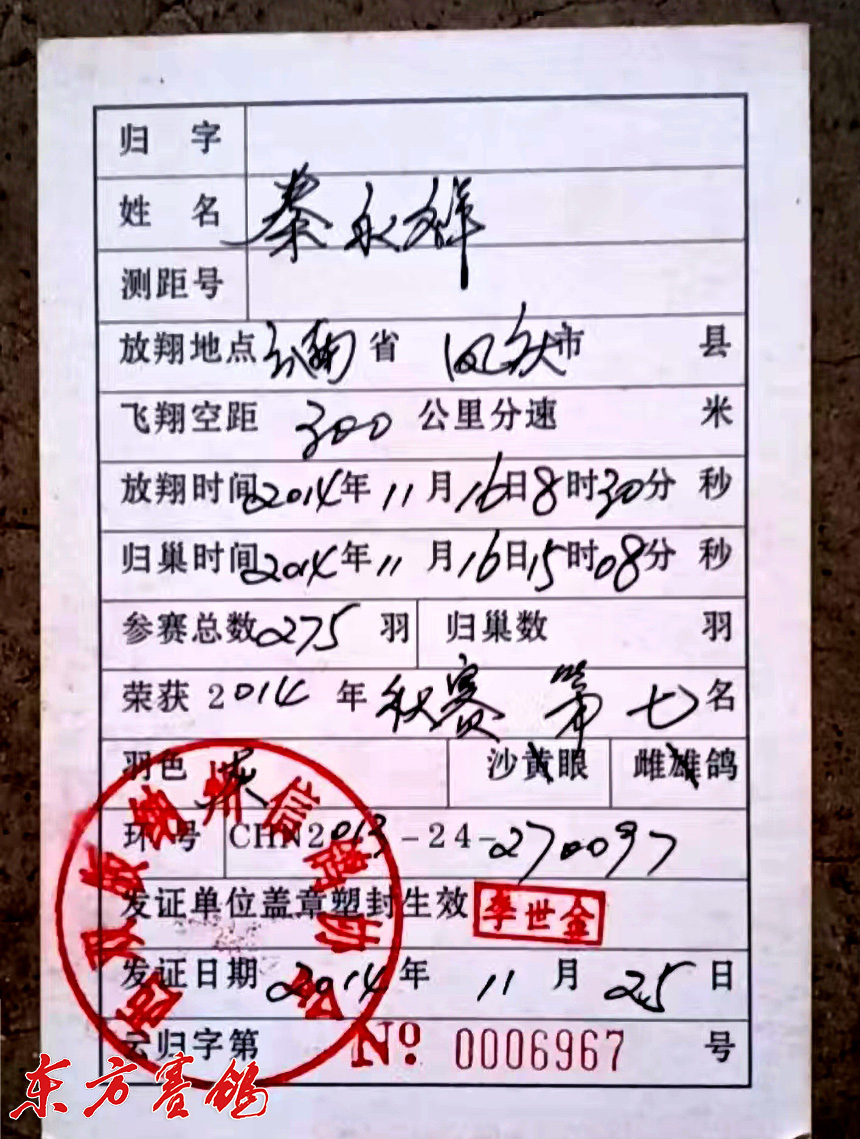 归 字
姓 名 秦永祥
测距号
放翔地点 云南 省 凤庆 市 县
飞翔空距 300 公里分速 米
放翔时间 2014 年 11 月 16 日 8 时 30 分 秒
归巢时间 2014 年 11 月 16 日 15 时 08 分 秒
参赛总数 275 羽 归巢数 羽
荣获 2014 年 秋赛 第 七 名
羽色 灰 沙黄眼 雌雄鸽
环 号 CHN2013-24-270097
发证单位盖章塑封生效 李世金
西双版纳州信鸽协会
发证日期 2014 年 11 月 25 日
云归字第 No 0006967 号
东方赛鸽